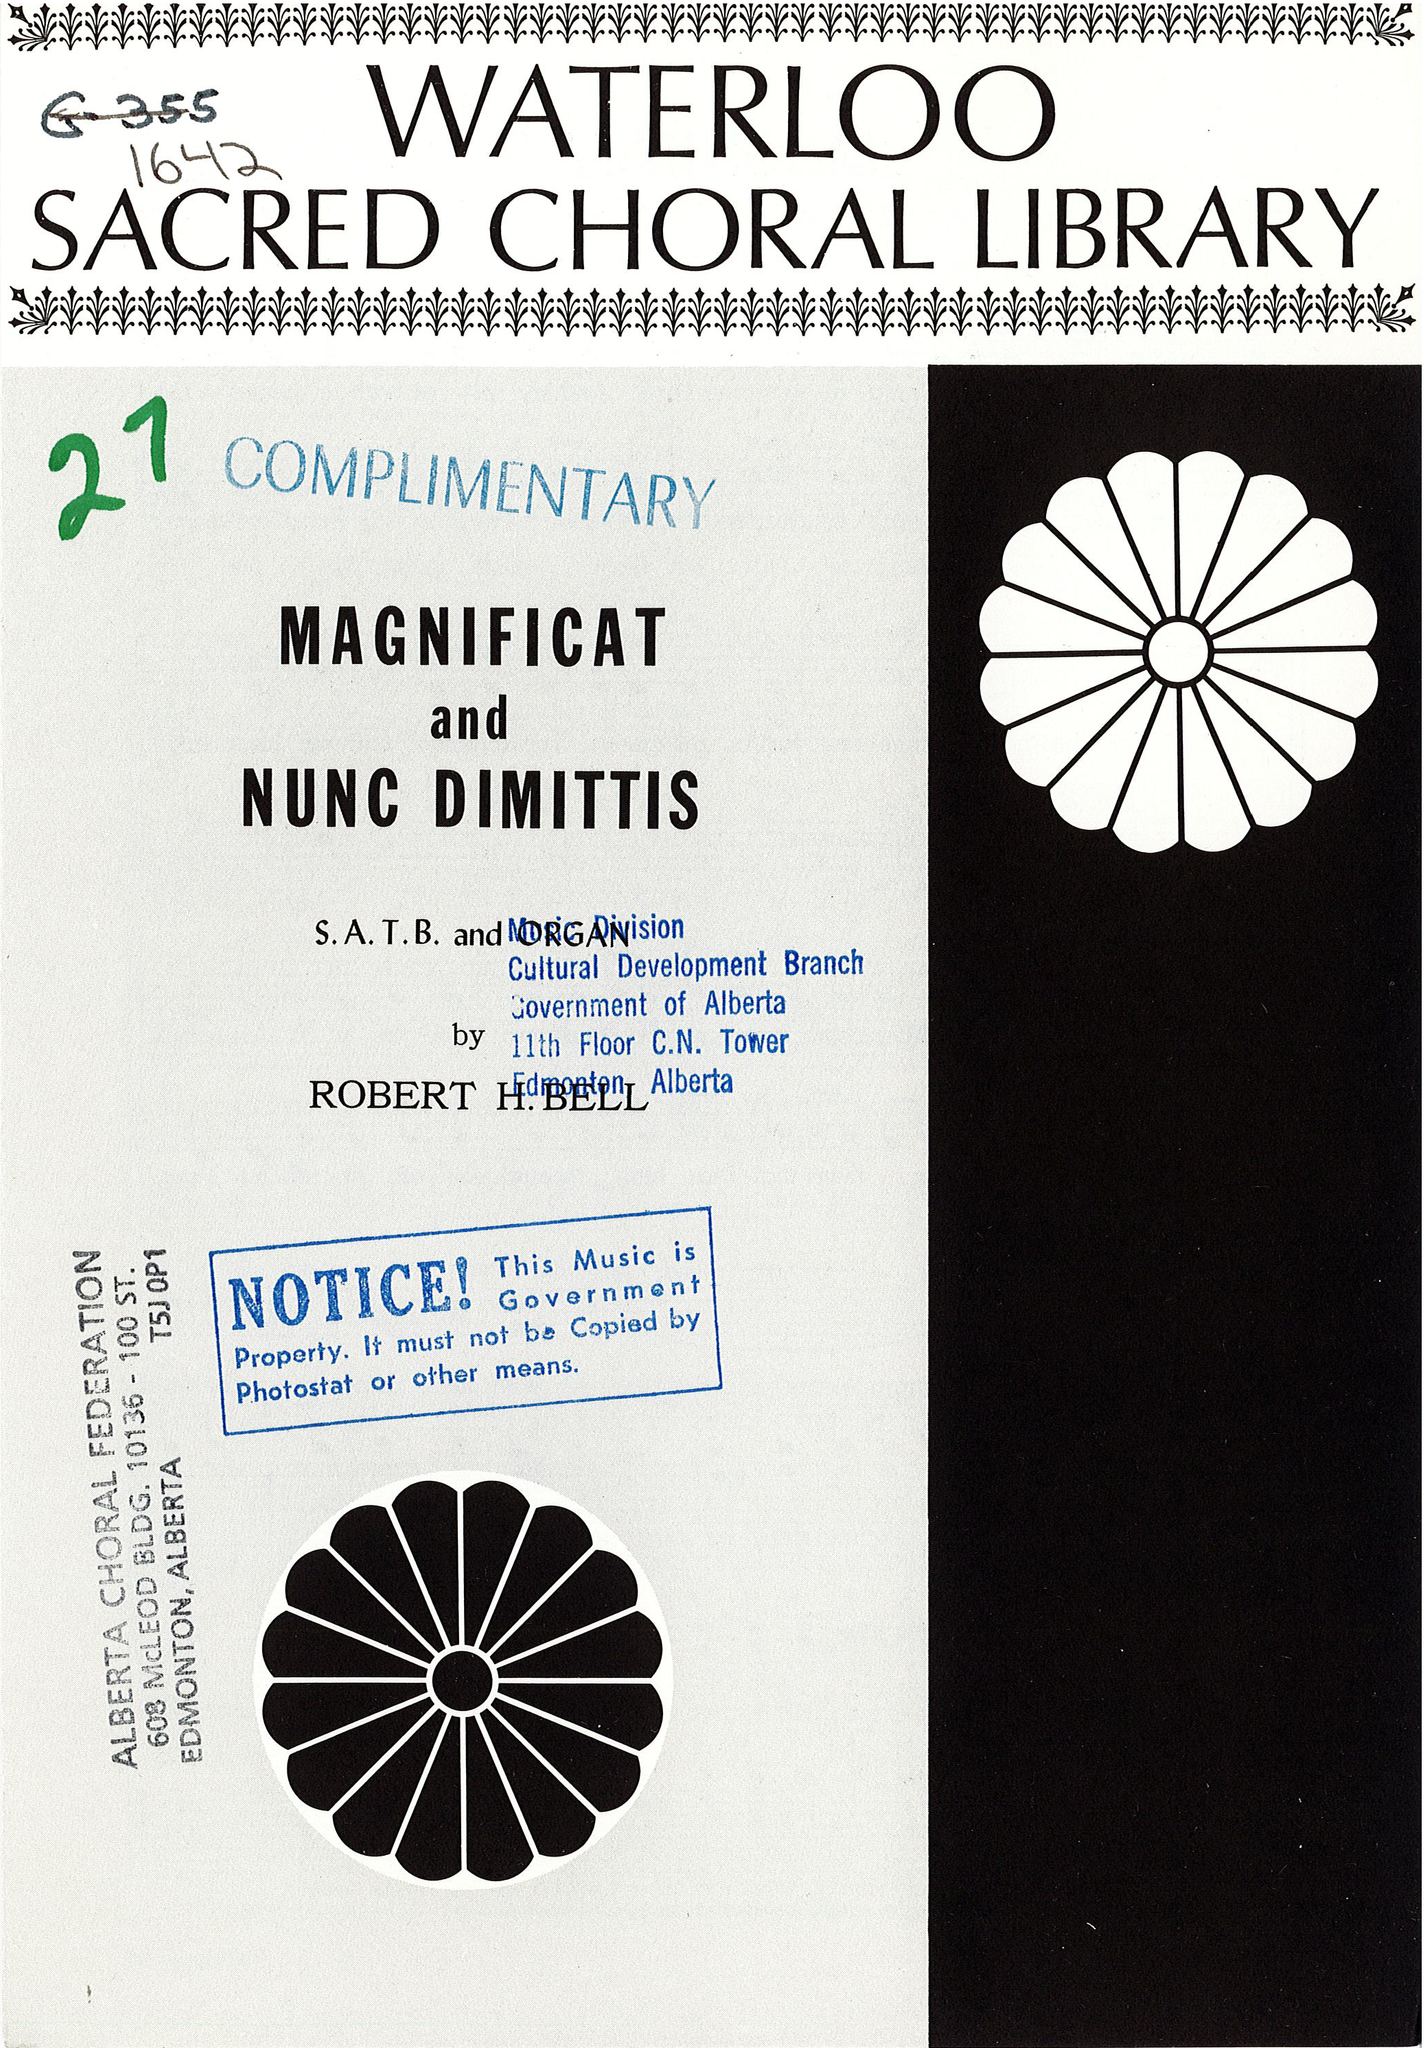 G-355
1642
WATERLOO
SACRED CHORAL LIBRARY
27
COMPLIMENTARY
MAGNIFICAT
and
NUNC DIMITTIS
S. A. T. B. and ORGAN
by
ROBERT H. BELL
Music Division
Cultural Development Branch
Government of Alberta
11th Floor C.N. Tower
Edmonton, Alberta
NOTICE! This Music is
Government
Property. It must not be Copied by
Photostat or other means.
ALBERTA CHORAL FEDERATION
608 McLEOD BLDG. 10136 - 100 ST.
EDMONTON, ALBERTA T5J 0P1